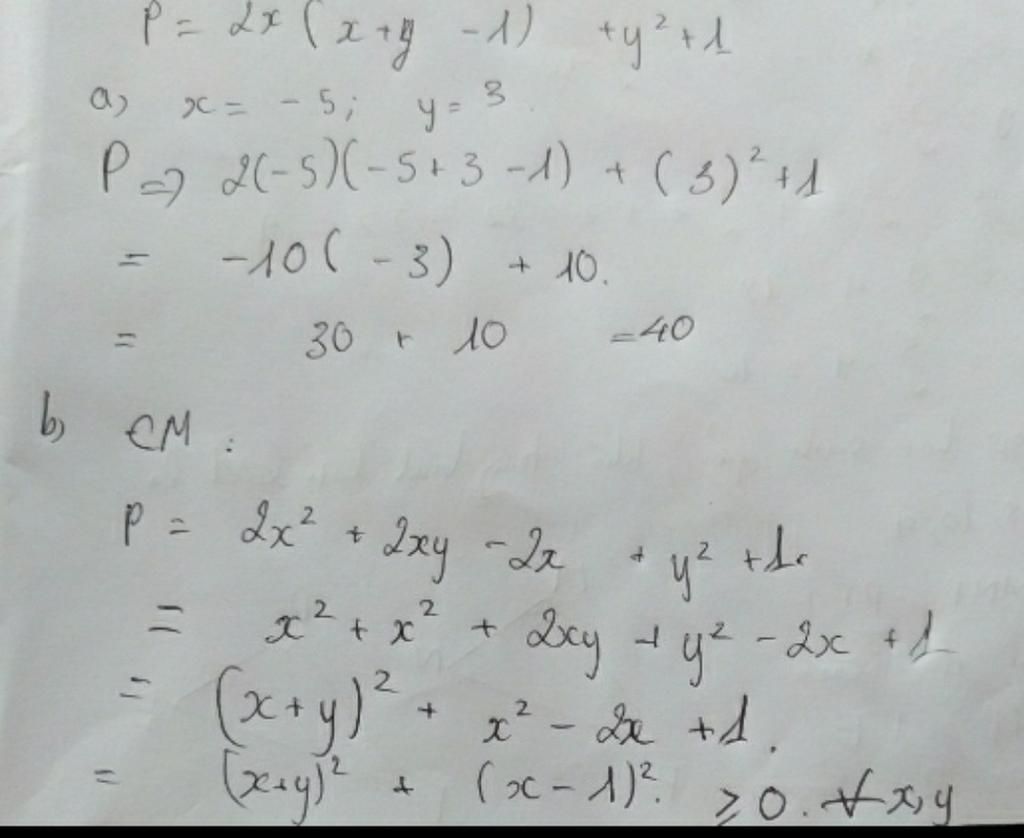 P = 2x (x+y -1) +y² +1
a) x = -5; y = 3.
P => 2(-5)(-5+3-1) + (3)² +1
= -10(-3) + 10.
= 30 + 10 = 40
b) CM :
P = 2x² + 2xy - 2x + y² +1.
= x² + x² + 2xy + y² - 2x + 1
= (x+y)² + x² - 2x +1.
= (x+y)² + (x-1)². ≥ 0. ∀ x,y